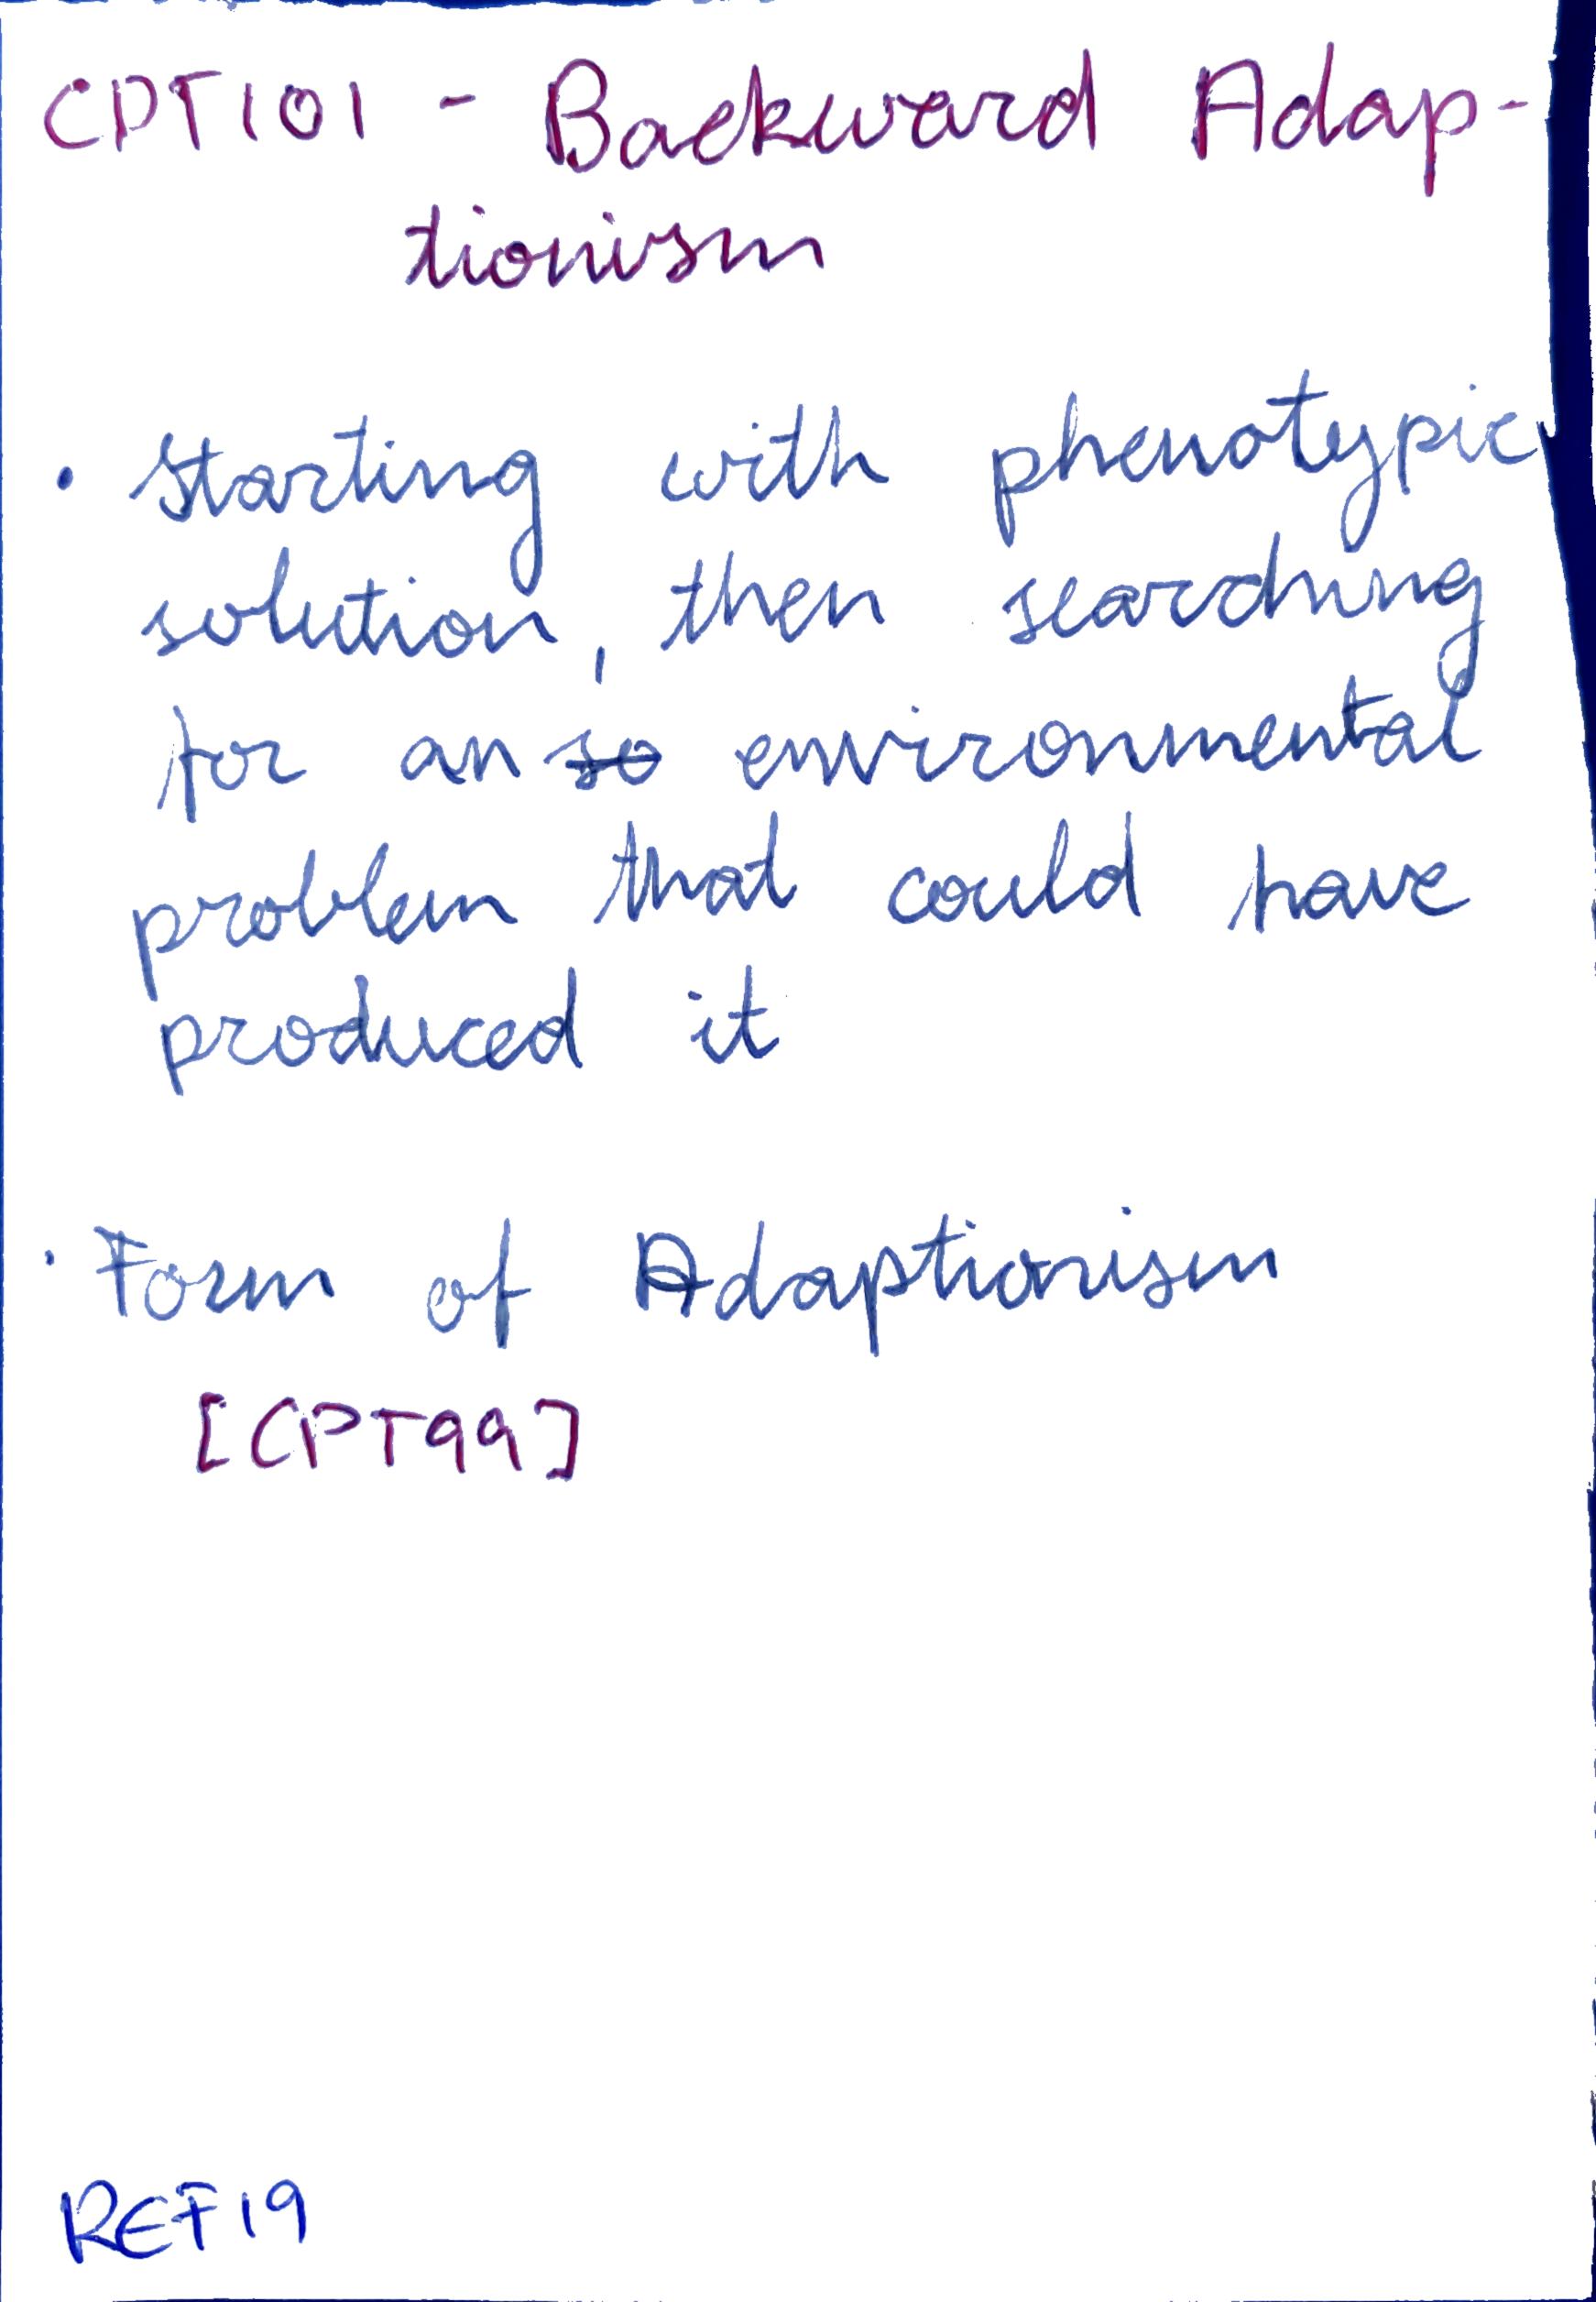 CPT101 - Backward Adap-
tionism
• starting with phenotypic
solution, then searching
for an so environmental
problem that could have
produced it
• Form of Adaptionism
[CPT99]
REF19